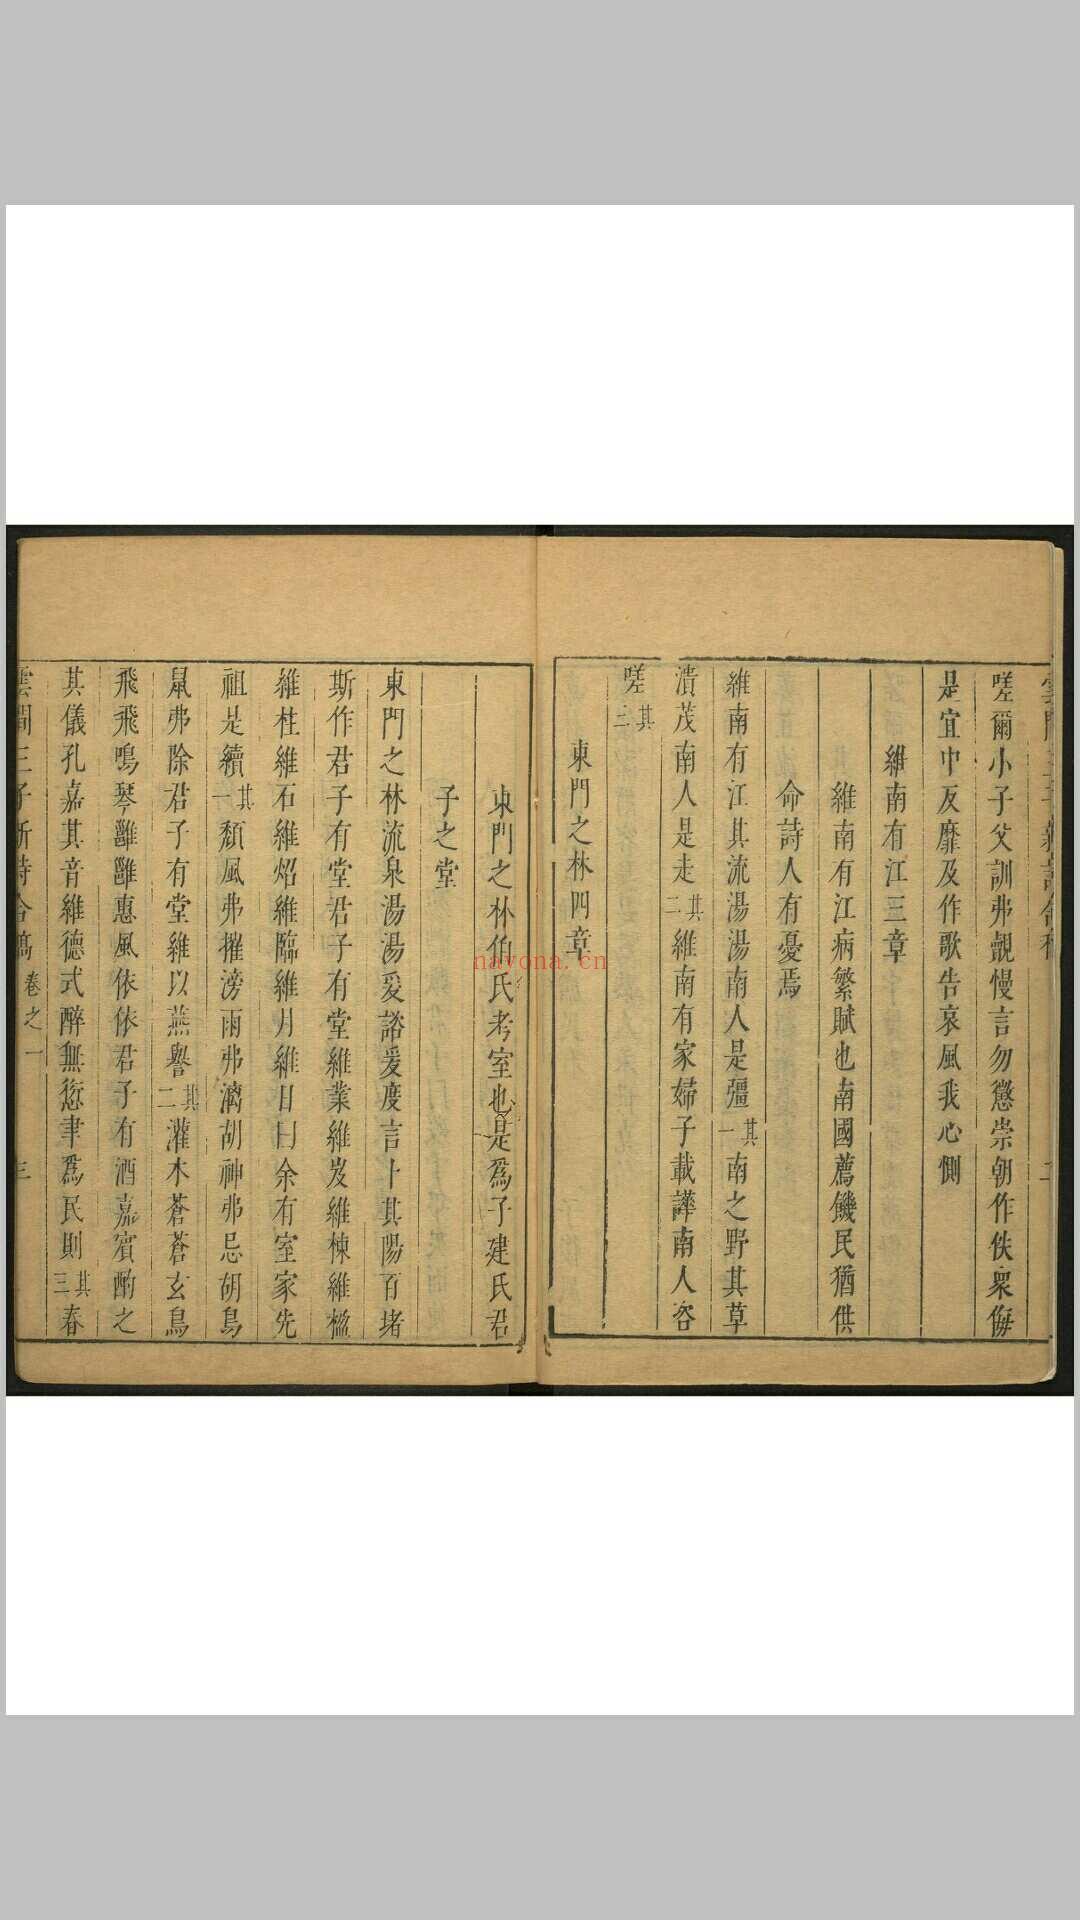 嗟爾小子父訓弗覿慢言勿懲崇朝作佚衆侮
是宜中反靡及作歌告哀風我心惻
維南有江三章
維南有江病繁賦也南國薦饑民猶供
命詩人有憂焉
維南有江其流湯湯南人是彊其一南之野其草
潰茂南人是走其二維南有家婦子載譁南人咨
嗟其三
東門之林四章
東門之林伯氏考室也是爲子建氏君
子之堂
東門之林流泉湯湯爰諮爰度言卜其陽百堵
斯作君子有堂君子有堂維業維岌維棟維楹
維柱維石維炤維臨維月維日曰余有室家先
祖是續其一頹風弗摧滂雨弗漓胡神弗忌胡鳥
鼠弗除君子有堂維以燕譽其二灌木蒼蒼玄鳥
飛飛鳴琴雝雝惠風依依君子有酒嘉賓酌之
其儀孔嘉其音維德式醉無愆聿爲民則其三春
雲間三子新詩合稿 卷之一 三
nayona.cn